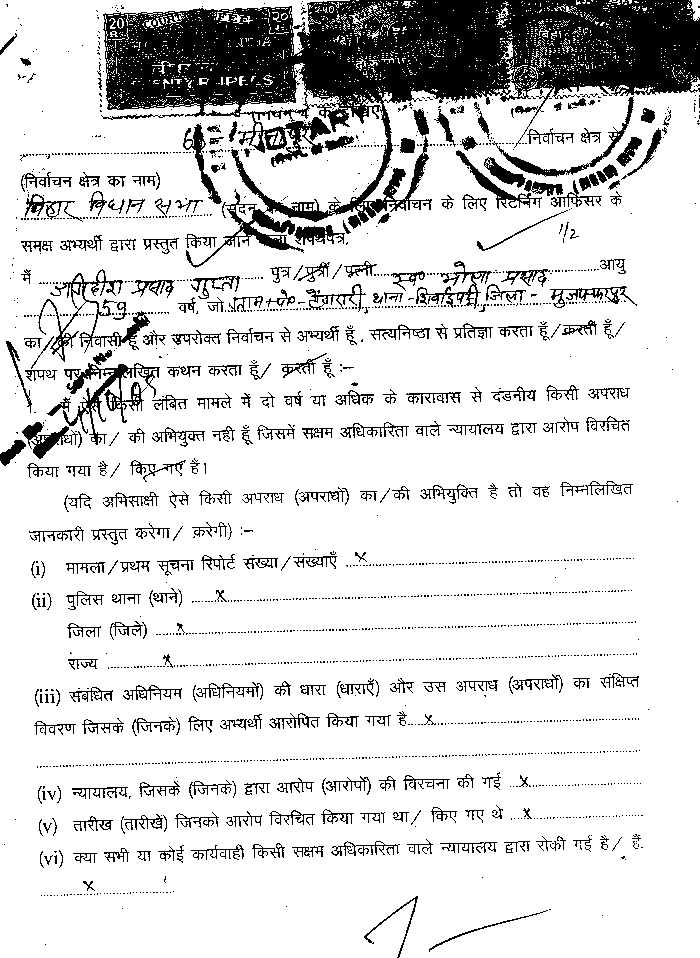 20
TWENTY RUPEES
मीनापुर
निर्वाचन क्षेत्र से
(निर्वाचन क्षेत्र का नाम)
बिहार विधान सभा (सदन का नाम) के लिए निर्वाचन के लिए रिटर्निंग ऑफिसर के
1/2
समक्ष अभ्यर्थी द्वारा प्रस्तुत किया जाने वाला शपथपत्र,
मैं प्रसाद गुप्ता पुत्र/पुत्री/पत्नी स्व० भोला प्रसाद आयु
59 वर्ष, जो ग्राम+पो०- थाना-शिवाईपट्टी, जिला- मुजफ्फरपुर
का/की निवासी हूँ और उपरोक्त निर्वाचन से अभ्यर्थी हूँ, सत्यनिष्ठा से प्रतिज्ञा करता हूँ/करती हूँ/
शपथ पर निम्नलिखित कथन करता हूँ/ करती हूँ :–
1. मैं ऐसे किसी लंबित मामले में दो वर्ष या अधिक के कारावास से दंडनीय किसी अपराध
(अपराधों) का/ की अभियुक्त नही हूँ जिसमें सक्षम अधिकारिता वाले न्यायालय द्वारा आरोप विरचित
किया गया है/ किए गए हैं।
(यदि अभिसाक्षी ऐसे किसी अपराध (अपराधों) का/की अभियुक्ति है तो वह निम्नलिखित
जानकारी प्रस्तुत करेगा/ करेगी) :–
(i) मामला/प्रथम सूचना रिपोर्ट संख्या/संख्याएँ x
(ii) पुलिस थाना (थाने) x
जिला (जिले) x
राज्य x
(iii) संबंधित अधिनियम (अधिनियमों) की धारा (धाराएँ) और उस अपराध (अपराधों) का संक्षिप्त
विवरण जिसके (जिनके) लिए अभ्यर्थी आरोपित किया गया है x
(iv) न्यायालय, जिसके (जिनके) द्वारा आरोप (आरोपों) की विरचना की गई x
(v) तारीख (तारीखें) जिनको आरोप विरचित किया गया था/ किए गए थे x
(vi) क्या सभी या कोई कार्यवाही किसी सक्षम अधिकारिता वाले न्यायालय द्वारा रोकी गई है/ हैं.
x